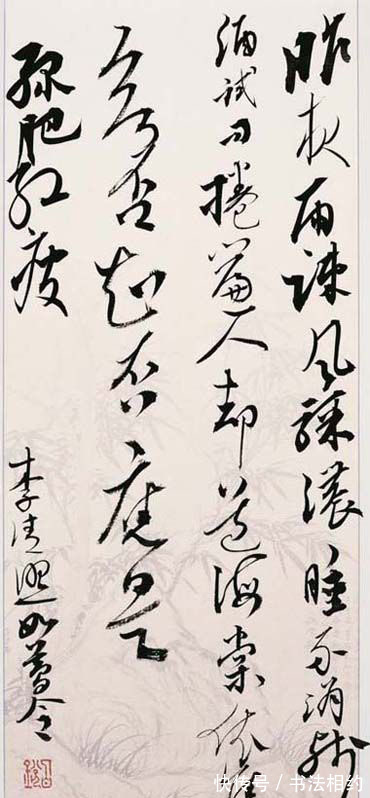 昨夜雨疎风骤濃睡不消残
酒试问捲簾人却道海棠依旧
知否知否應是
绿肥红瘦
李清照如夢令
快传号/书法相约